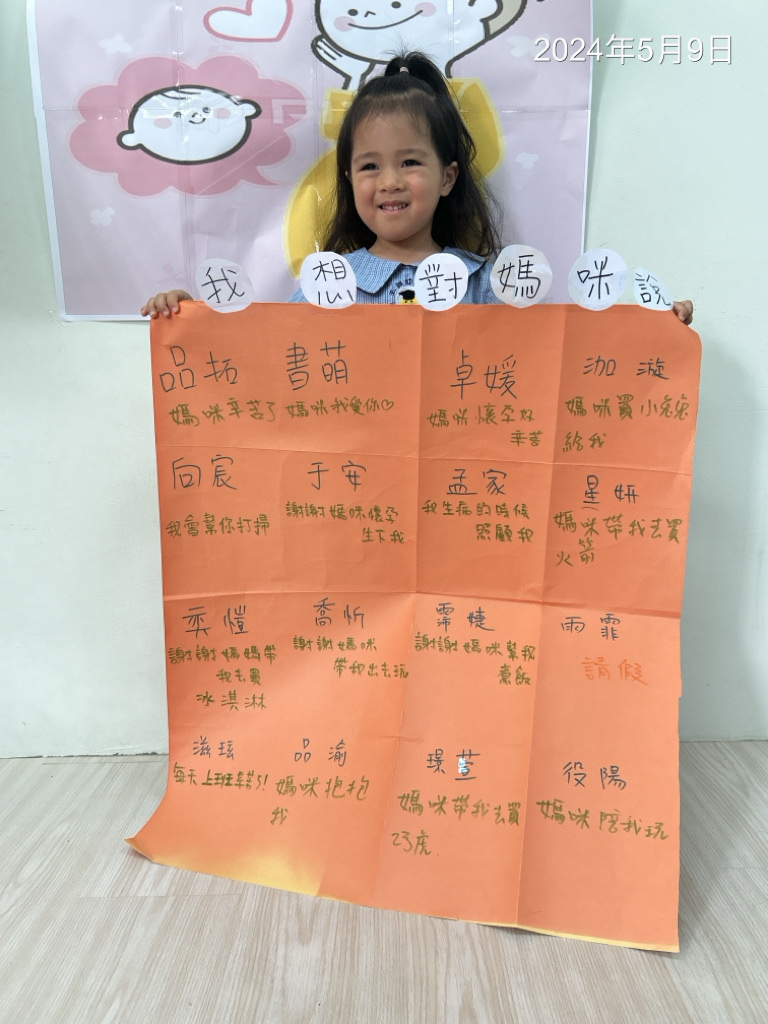 2024年5月9日
我想對媽咪說
品拓
媽咪辛苦了
書萌
媽咪我愛你♡
卓媛
媽咪懷孕好
辛苦
泇漩
媽咪買小兔兔
給我
向宸
我會幫你打掃
于安
謝謝媽咪懷孕
生下我
孟家
我生病的時候
照顧我
星妍
媽咪帶我去買
火箭
奕愷
謝謝媽媽帶
我去買
冰淇淋
喬忻
謝謝媽咪
帶我出去玩
霈婕
謝謝媽咪幫我
煮飯
雨霏
請假
滋瑤
每天上班辛苦了!
品渝
媽咪抱抱
我
璟萱
媽咪帶我去買
巧虎
役陽
媽咪陪我玩